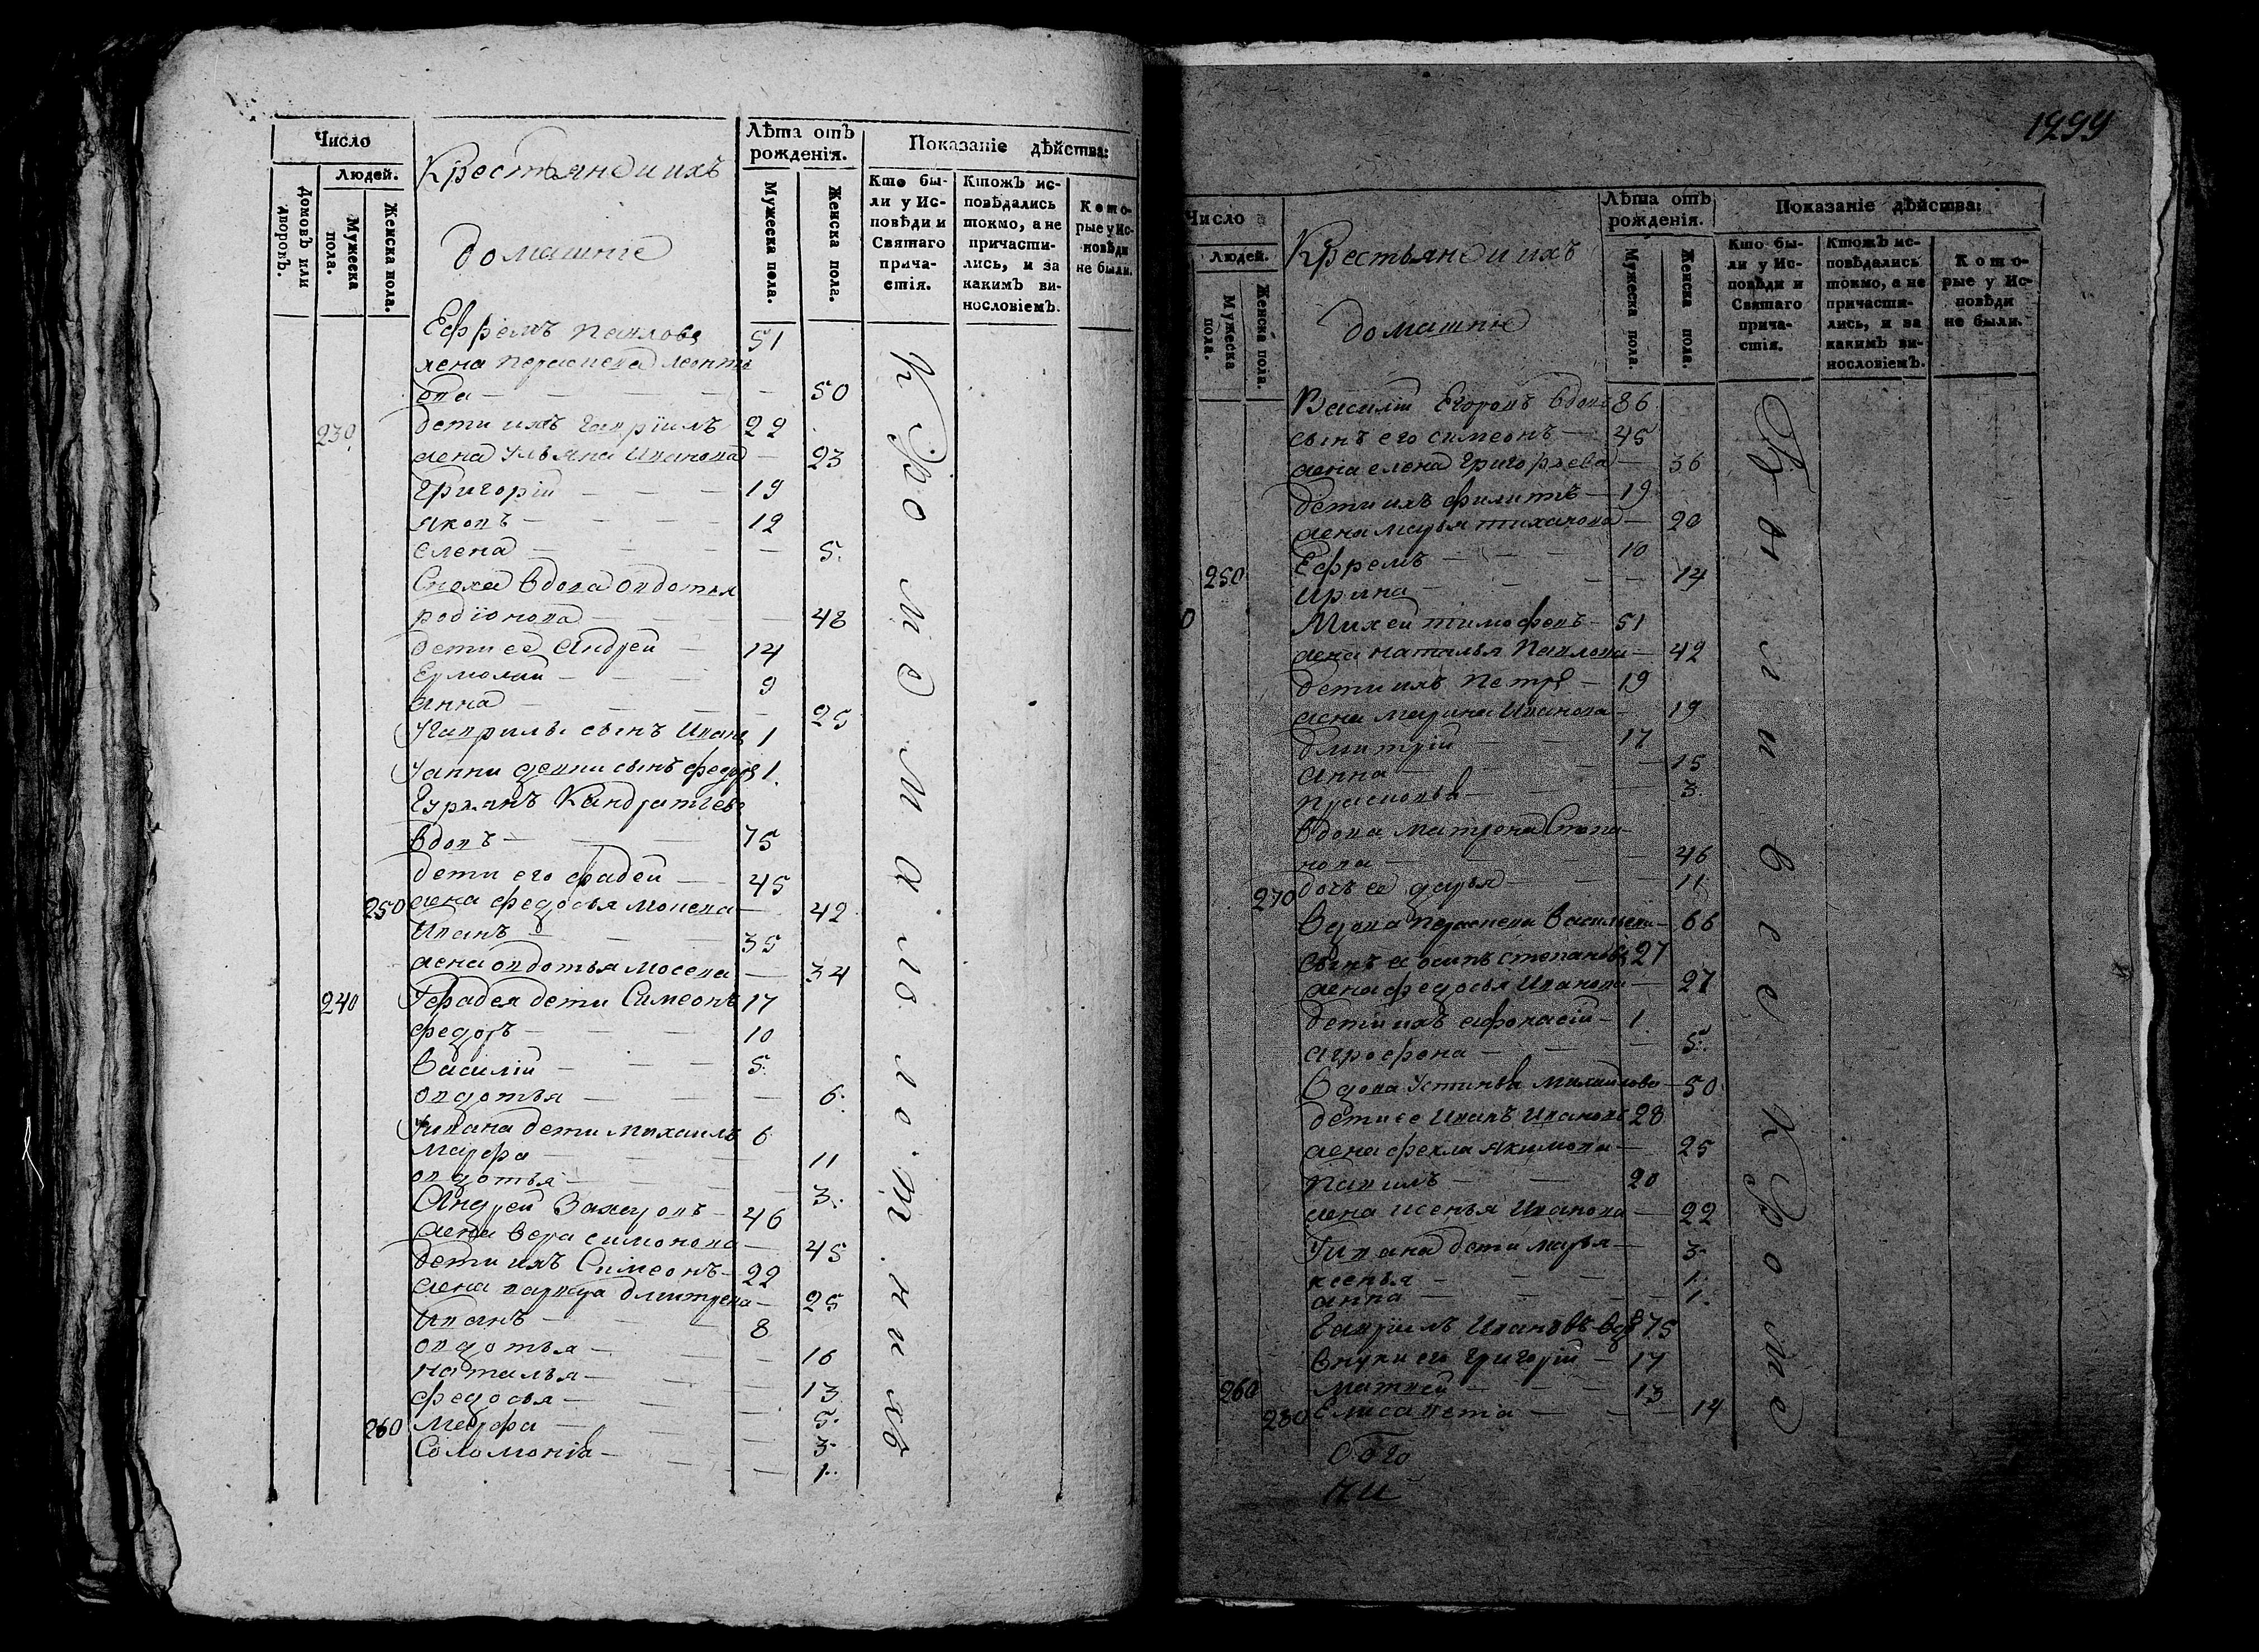 Число
Людей.
Домовъ или дворовъ.
Мужеска пола.
Женска пола.
Крестьяне и ихъ
домашніе
Лѣта отъ рожденія.
Мужеска пола.
Женска пола.
Показаніе дѣйства:
Кто бы-
ли у Ис-
повѣди и
Святаго
прича-
стія.
Ктожъ ис-
повѣдались
токмо, а не
причасти-
лись, и за
какимъ ви-
нословіемъ.
Кото-
рые у Ис-
повѣди
не были.
Ефремъ Павловъ 51
жена Прасковья Леонть
ева — 50
230 дети ихъ Гавріилъ 22
жена Ульяна Иванова — 23
Григорій — 19
Яковъ — 12
Елена — 5.
Сноха вдова Овдотья
Родіонова — 48
дети ее Андрей — 14
Ермолай — 9
Анна — 25
У Гаврилы сынъ Иванъ 1
сынъ Федоръ 1.
Кандратьевъ
вдовъ — 75
дети его Фадей — 45
250 жена Федосья Мосеева — 42
Иванъ — 35
жена Овдотья Мосеева — 34
240 У Фадея дети Симеонъ 17
Федоръ — 10
Василій — 5.
Овдотья — 6.
У Ивана дети Михаилъ 6
Марфа — 11
Овдотья — 3.
Андрей Захаровъ — 46
жена Вера Симонова — 45
дети ихъ Симеонъ — 22
жена Варвара Дмитрева — 25
Иванъ — 8
Овдотья — 16
Наталья — 13
Федосья — 5.
260 Марфа — 3.
Соломонія — 1.
Кроме малолотнихъ
1299
Число
Людей.
Мужеска пола.
Женска пола.
Крестьяне и ихъ
домашніе
Лѣта отъ рожденія.
Мужеска пола.
Женска пола.
Показаніе дѣйства:
Кто бы-
ли у Ис-
повѣди и
Святаго
прича-
стія.
Ктожъ ис-
повѣдались
токмо, а не
причасти-
лись, и за
какимъ ви-
нословіемъ.
Кото-
рые у Ис-
повѣди
не были.
Василій Егоровъ вдовъ 86
сынъ его Симеонъ — 45
жена Елена Григорьева — 36
дети ихъ Филипъ — 19
жена Марья Тихонова — 20
Ефремъ — 10
250 Ирина — 14
Михей Тимофеевъ — 51
жена Наталья Павлова — 42
дети ихъ Петръ — 19
жена Марина Иванова — 19
Дмитрій — 17
Анна — 15
Прасковья — 3.
Вдова Матрена Степа-
нова — 46
270 дочь ее Дарья — 11
Вдова Прасковья Васильева — 66
сынъ ее Осипъ Степановъ 27
жена Федосья Иванова — 27
дети ихъ Афонасій — 1
Агрофена — 5.
Вдова Устинья Михайлова — 50
дети ее Иванъ Ивановъ 28
жена Фекла Якимова — 25
20
жена Ксенья Иванова — 22
У Ивана дети Марья — 3.
Ксенья — 1.
Анна — 1.
Гавріилъ Ивановъ вдовъ 75
внуки его Григорій — 17
260 Матвей — 13
280 Елисавета — 14
Были все кроме